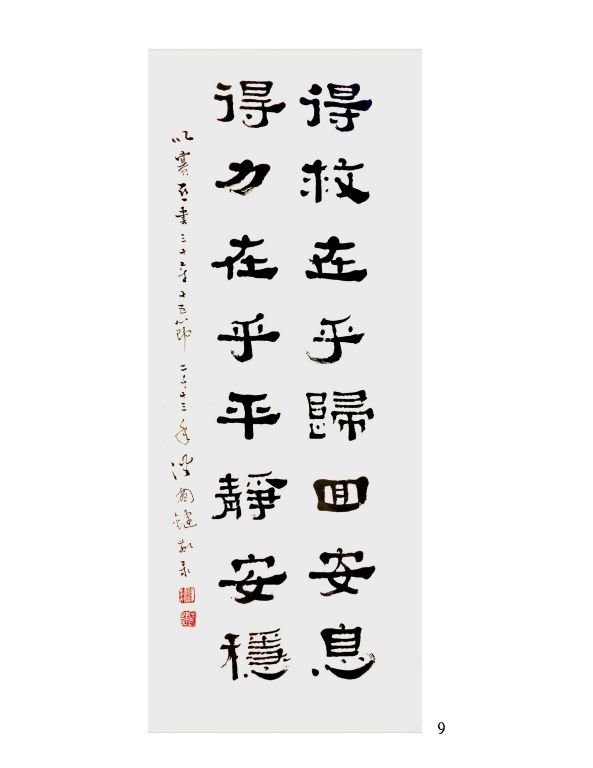 得救在乎歸回安息
得力在乎平靜安穩
以賽亞書三十章十五節 二千十三年 國鍵敬录
9